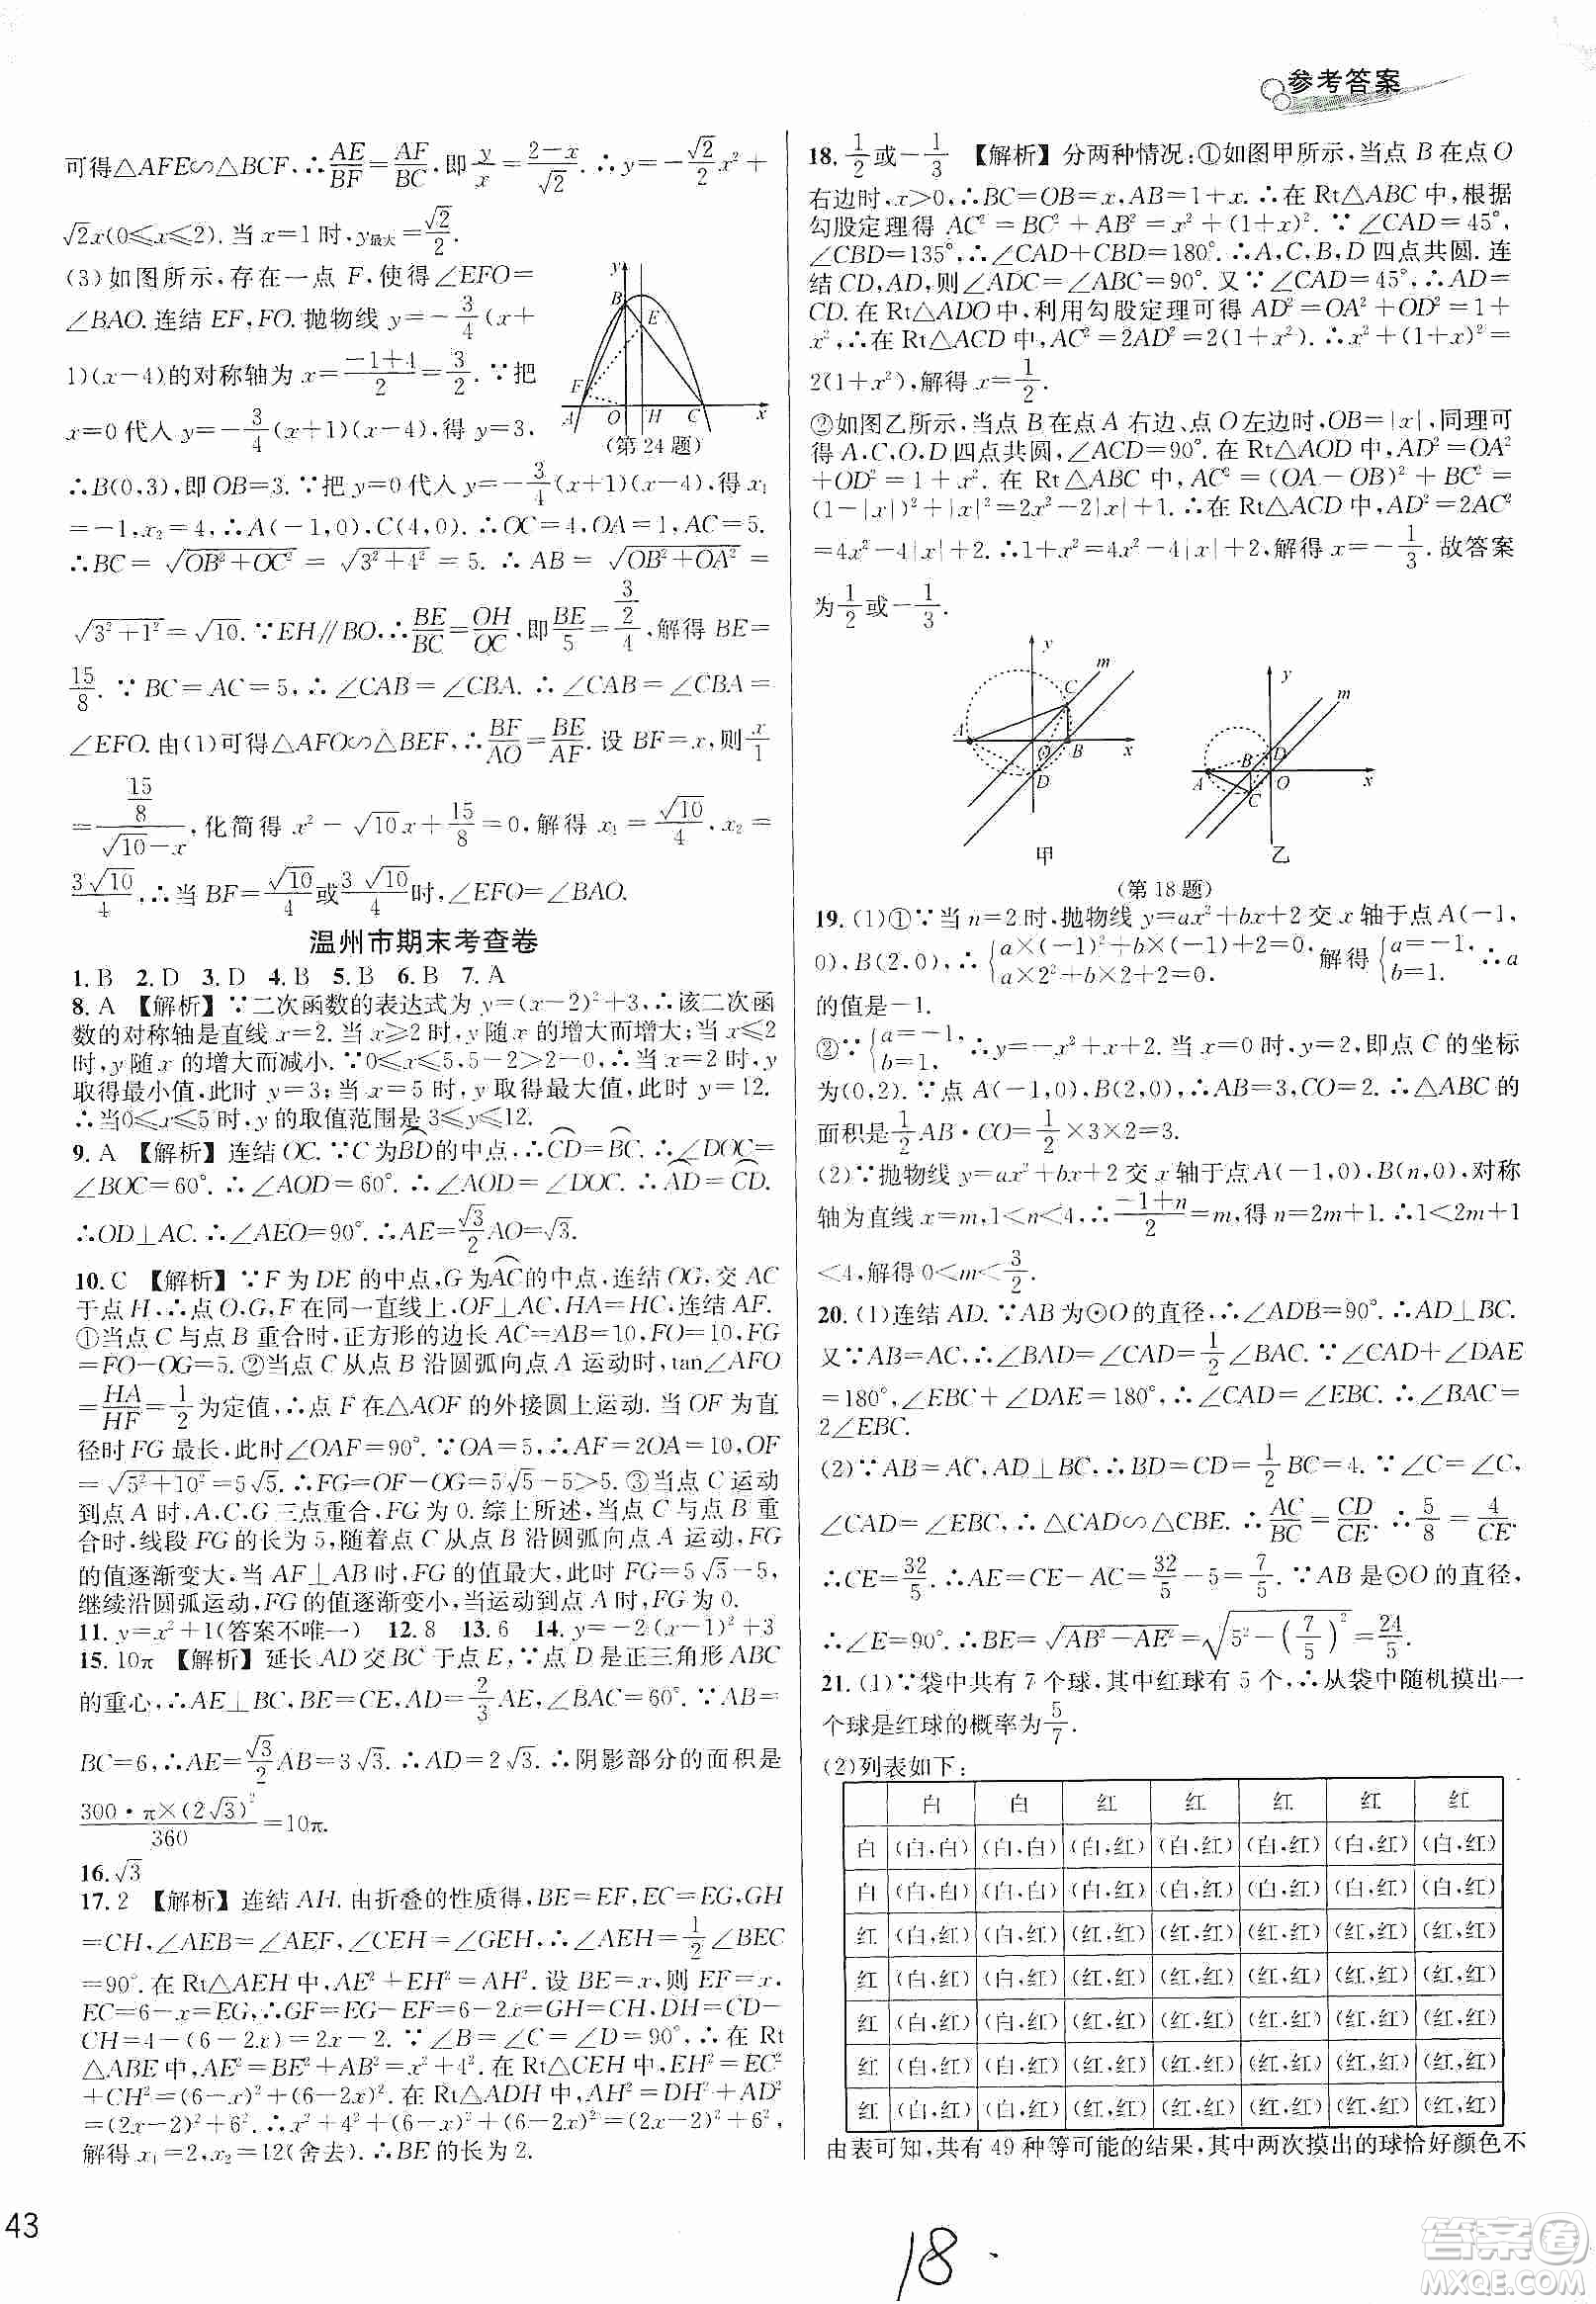 参考答案
可得△AFE∽△BCF,∴AE/BF=AF/BC,即y/x=(2-x)/√2.∴y=-(√2/2)x²+
√2x(0≤x≤2).当x=1时,y最大=√2/2.
(3)如图所示,存在一点F,使得∠EFO=
∠BAO.连结EF,FO.抛物线y=-3/4(x+
1)(x-4)的对称轴为x=(-1+4)/2=3/2.∵把
x=0代入y=-3/4(x+1)(x-4),得y=3.
y B E F A O H C x
(第24题)
∴B(0,3),即OB=3.∵把y=0代入y=-3/4(x+1)(x-4),得x₁
=-1,x₂=4,∴A(-1,0),C(4,0).∴OC=4,OA=1,AC=5.
∴BC=√(OB²+OC²)=√(3²+4²)=5.∴AB=√(OB²+OA²)=
√(3²+1²)=√10.∵EH∥BO,∴BE/BC=OH/OC,即BE/5=(3/2)/4,解得BE=
15/8.∵BC=AC=5,∴∠CAB=∠CBA.∴∠CAB=∠CBA=
∠EFO.由(1)可得△AFO∽△BEF,∴BF/AO=BE/AF.设BF=x,则x/1
=(15/8)/(√10-x),化简得x²-√10x+15/8=0,解得x₁=√10/4,x₂=
3√10/4,∴当BF=√10/4或3√10/4时,∠EFO=∠BAO.
温州市期末考查卷
1.B 2.D 3.D 4.B 5.B 6.B 7.A
8.A 【解析】∵二次函数的表达式为y=(x-2)²+3,∴该二次函
数的对称轴是直线x=2.当x≥2时,y随x的增大而增大;当x≤2
时,y随x的增大而减小.∵0≤x≤5,5-2>2-0,∴当x=2时,y
取得最小值,此时y=3;当x=5时,y取得最大值,此时y=12.
∴当0≤x≤5时,y的取值范围是3≤y≤12.
9.A 【解析】连结OC.∵C为⌒BD的中点,∴⌒CD=⌒BC.∴∠DOC=
∠BOC=60°.∴∠AOD=60°.∴∠AOD=∠DOC.∴⌒AD=⌒CD.
∴OD⊥AC.∴∠AEO=90°.∴AE=(√3/2)AO=√3.
10.C 【解析】∵F为DE的中点,G为⌒AC的中点,连结OG,交AC
于点H,∴点O,G,F在同一直线上,OF⊥AC,HA=HC,连结AF.
①当点C与点B重合时,正方形的边长AC=AB=10,FO=10,FG
=FO-OG=5.②当点C从点B沿圆弧向点A运动时,tan∠AFO
=HA/HF=1/2为定值,∴点F在△AOF的外接圆上运动.当OF为直
径时FG最长,此时∠OAF=90°.∵OA=5,∴AF=2OA=10,OF
=√(5²+10²)=5√5.∴FG=OF-OG=5√5-5>5.③当点C运动
到点A时,A,C,G三点重合,FG为0.综上所述,当点C与点B重
合时,线段FG的长为5,随着点C从点B沿圆弧向点A运动,FG
的值逐渐变大,当AF⊥AB时,FG的值最大,此时FG=5√5-5,
继续沿圆弧运动,FG的值逐渐变小,当运动到点A时,FG=0.
11.y=x²+1(答案不唯一) 12.8 13.6 14.y=-2(x-1)²+3
15.10π 【解析】延长AD交BC于点E,∵点D是正三角形ABC
的重心,∴AE⊥BC,BE=CE,AD=2/3AE,∠BAC=60°.∵AB=
BC=6,∴AE=(√3/2)AB=3√3.∴AD=2√3.∴阴影部分的面积是
300·π×(2√3)²/360=10π.
16.√3
17.2 【解析】连结AH.由折叠的性质得,BE=EF,EC=EG,GH
=CH,∠AEB=∠AEF,∠CEH=∠GEH,∴∠AEH=1/2∠BEC
=90°.在Rt△AEH中,AE²+EH²=AH².设BE=x,则EF=x,
EC=6-x=EG,∴GF=EG-EF=6-2x=GH=CH,DH=CD-
CH=4-(6-2x)=2x-2.∵∠B=∠C=∠D=90°,∴在Rt
△ABE中,AE²=BE²+AB²=x²+4².在Rt△CEH中,EH²=EC²
+CH²=(6-x)²+(6-2x)².在Rt△ADH中,AH²=DH²+AD²
=(2x-2)²+6².∴x²+4²+(6-x)²+(6-2x)²=(2x-2)²+6²,
解得x₁=2,x₂=12(舍去).∴BE的长为2.
18.1/2或-1/3 【解析】分两种情况:①如图甲所示,当点B在点O
右边时,x>0,∴BC=OB=x,AB=1+x.∴在Rt△ABC中,根据
勾股定理得AC²=BC²+AB²=x²+(1+x)².∵∠CAD=45°,
∠CBD=135°,∴∠CAD+CBD=180°.∴A,C,B,D四点共圆.连
结CD,AD,则∠ADC=∠ABC=90°.又∵∠CAD=45°,∴AD=
CD.在Rt△ADO中,利用勾股定理可得AD²=OA²+OD²=1+
x²,∴在Rt△ACD中,AC²=2AD²=2(1+x²).∴x²+(1+x)²=
2(1+x²),解得x=1/2.
②如图乙所示,当点B在点A右边、点O左边时,OB=|x|,同理可
得A,C,O,D四点共圆,∠ACD=90°.在Rt△AOD中,AD²=OA²
+OD²=1+x².在Rt△ABC中,AC²=(OA-OB)²+BC²=
(1-|x|)²+|x|²=2x²-2|x|+1.∴在Rt△ACD中,AD²=2AC²
=4x²-4|x|+2.∴1+x²=4x²-4|x|+2,解得x=-1/3.故答案
为1/2或-1/3.
y m C A O B x D 甲
y m B D A O x C 乙
(第18题)
19.(1)①∵当n=2时,抛物线y=ax²+bx+2交x轴于点A(-1,
0),B(2,0),∴{a×(-1)²+b×(-1)+2=0, a×2²+b×2+2=0. 解得{a=-1, b=1. ∴a
的值是-1.
②∵{a=-1, b=1, ∴y=-x²+x+2.当x=0时,y=2,即点C的坐标
为(0,2).∵点A(-1,0),B(2,0),∴AB=3,CO=2.∴△ABC的
面积是1/2AB·CO=1/2×3×2=3.
(2)∵抛物线y=ax²+bx+2交x轴于点A(-1,0),B(n,0),对称
轴为直线x=m,1<n<4,∴(-1+n)/2=m,得n=2m+1.∴1<2m+1
<4,解得0<m<3/2.
20.(1)连结AD.∵AB为⊙O的直径,∴∠ADB=90°.∴AD⊥BC.
又∵AB=AC,∴∠BAD=∠CAD=1/2∠BAC.∵∠CAD+∠DAE
=180°,∠EBC+∠DAE=180°,∴∠CAD=∠EBC.∴∠BAC=
2∠EBC.
(2)∵AB=AC,AD⊥BC,∴BD=CD=1/2BC=4.∵∠C=∠C,
∠CAD=∠EBC,∴△CAD∽△CBE.∴AC/BC=CD/CE.∴5/8=4/CE.
∴CE=32/5.∴AE=CE-AC=32/5-5=7/5.∵AB是⊙O的直径,
∴∠E=90°.∴BE=√(AB²-AE²)=√(5²-(7/5)²)=24/5.
21.(1)∵袋中共有7个球,其中红球有5个,∴从袋中随机摸出一
个球是红球的概率为5/7.
(2)列表如下:
白 白 红 红 红 红 红
白 (白,白) (白,白) (白,红) (白,红) (白,红) (白,红) (白,红)
白 (白,白) (白,白) (白,红) (白,红) (白,红) (白,红) (白,红)
红 (白,红) (白,红) (红,红) (红,红) (红,红) (红,红) (红,红)
红 (白,红) (白,红) (红,红) (红,红) (红,红) (红,红) (红,红)
红 (白,红) (白,红) (红,红) (红,红) (红,红) (红,红) (红,红)
红 (白,红) (白,红) (红,红) (红,红) (红,红) (红,红) (红,红)
红 (白,红) (白,红) (红,红) (红,红) (红,红) (红,红) (红,红)
由表可知,共有49种等可能的结果,其中两次摸出的球恰好颜色不
43
18.
答案圈
MXQE.COM